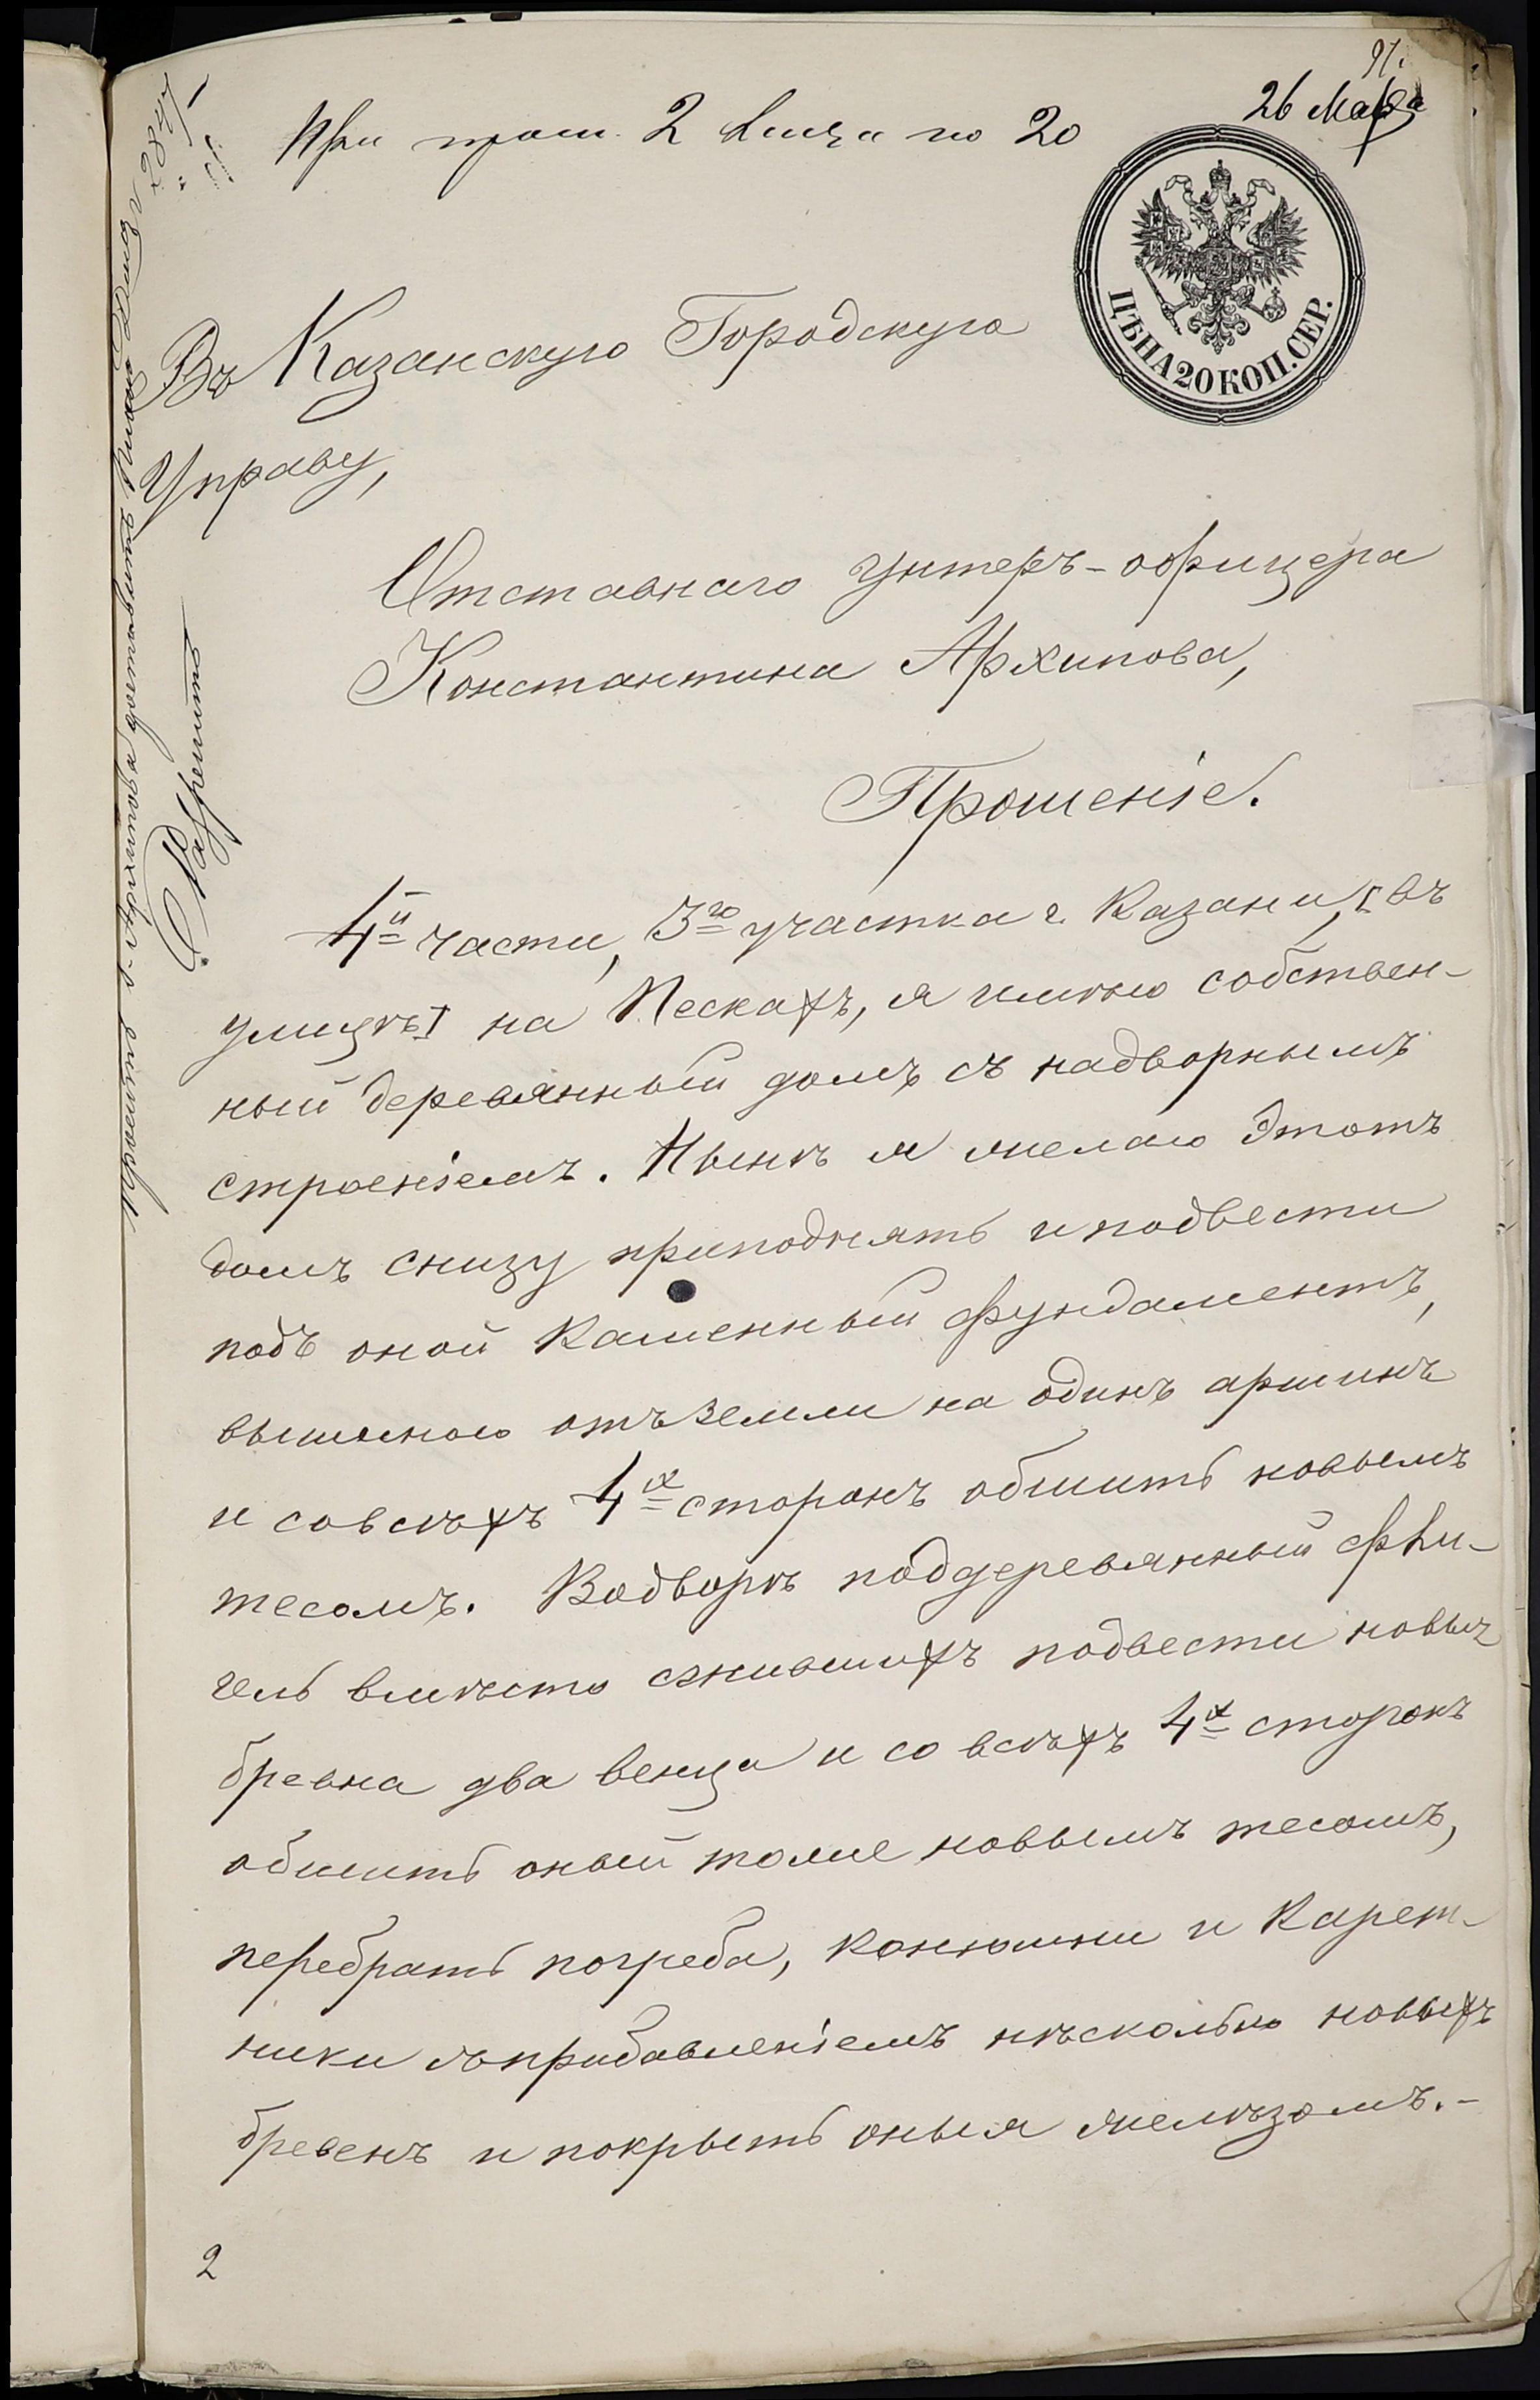 91.
26 Марта
При прош. 2 листа по 20
ЦѢНА 20 КОП. СЕР.
Въ Казанскую Городскую
Управу,
Отставнаго унтеръ-офицера
Константина Архипова,
Прошеніе.
Разрешить
4й части, 3го участка г. Казани, въ
улицѣ на Пескахъ, я имѣю собствен-
ный деревянный домъ съ надворнымъ
строеніемъ. Нынѣ я желаю этотъ
домъ снизу приподнять и подвести
подъ оной каменный фундаментъ,
вышиною отъ земли на одинъ аршинъ
и со всѣхъ 4х сторонъ обшить новымъ
тесомъ. Во дворѣ под деревянный фли-
гель вмѣсто сгнившихъ подвести новых
бревна два венца и со всѣхъ 4х сторонъ
обшить оный тоже новымъ тесомъ,
перебрать погреба, конюшни и карет-
ники съ прибавленіемъ нѣсколько новыхъ
бревенъ и покрыть оныя желѣзомъ.-
2